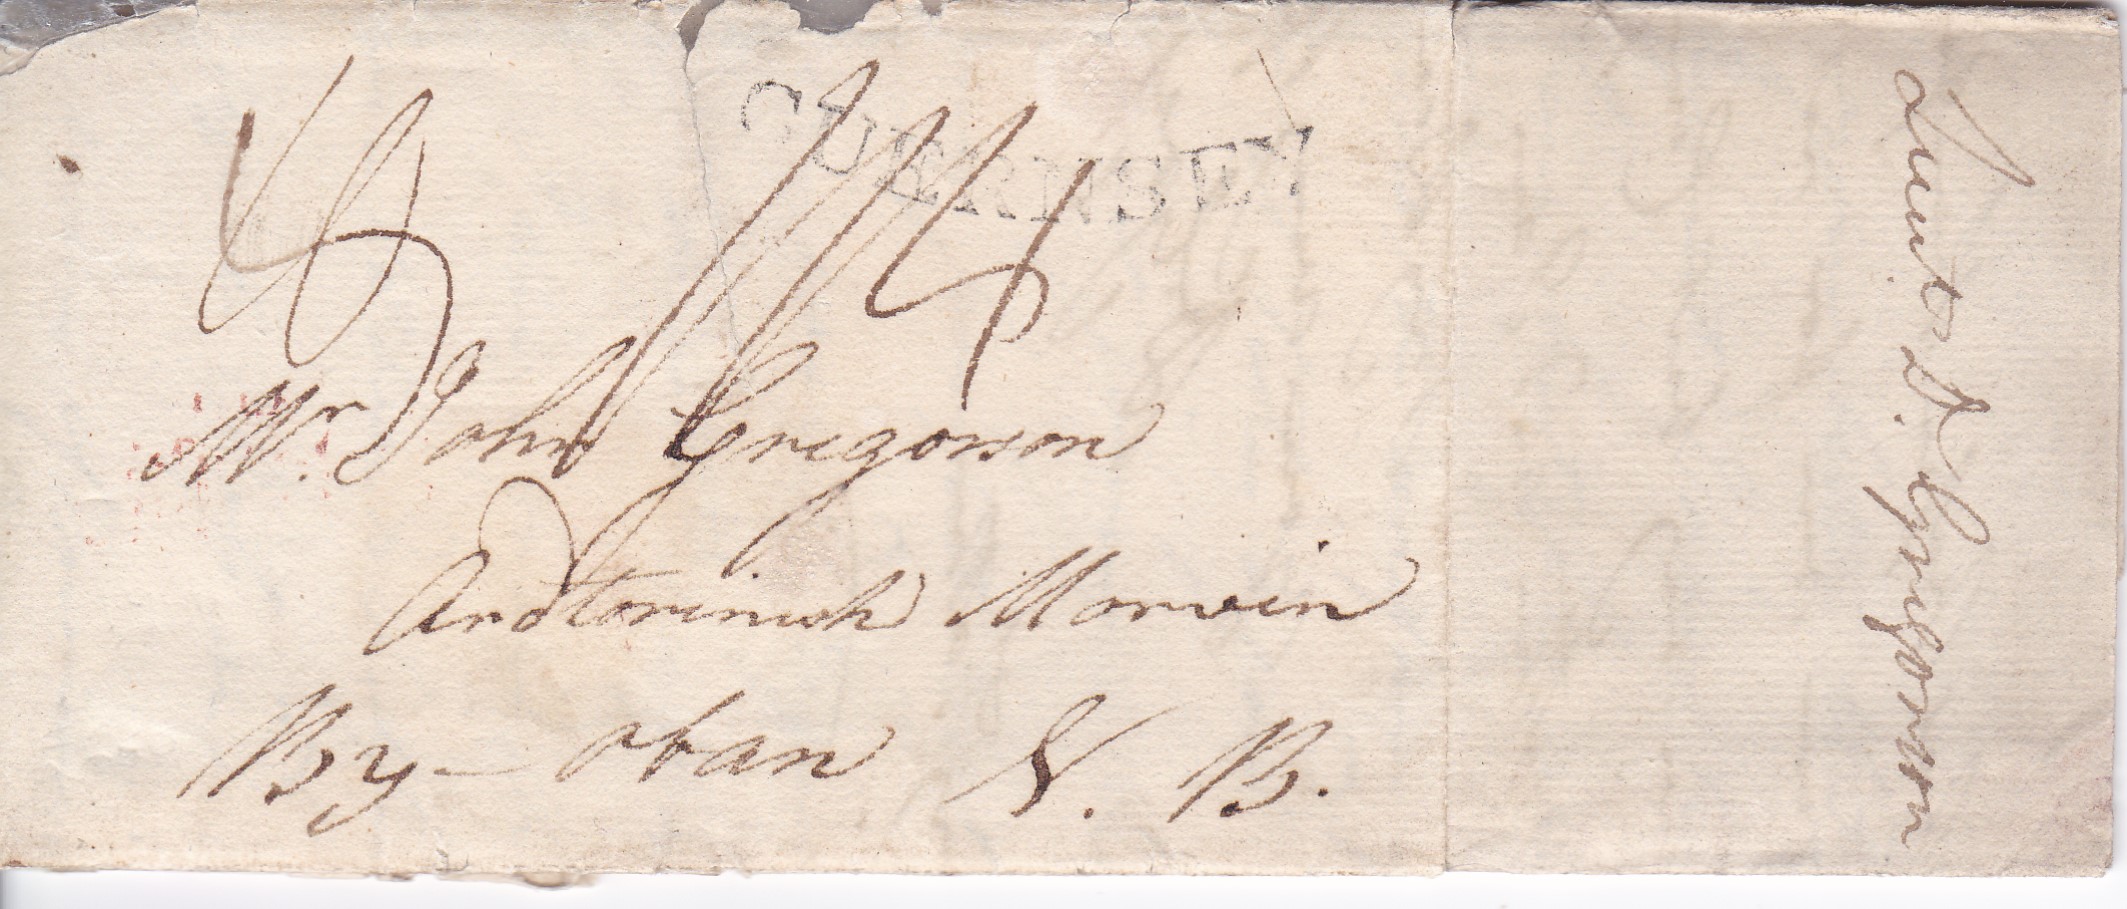 GUERNSEY
Mr. John Gregorson
Ardtorinish Morvein
By - oban N. B.
Lieut D. Gregorson